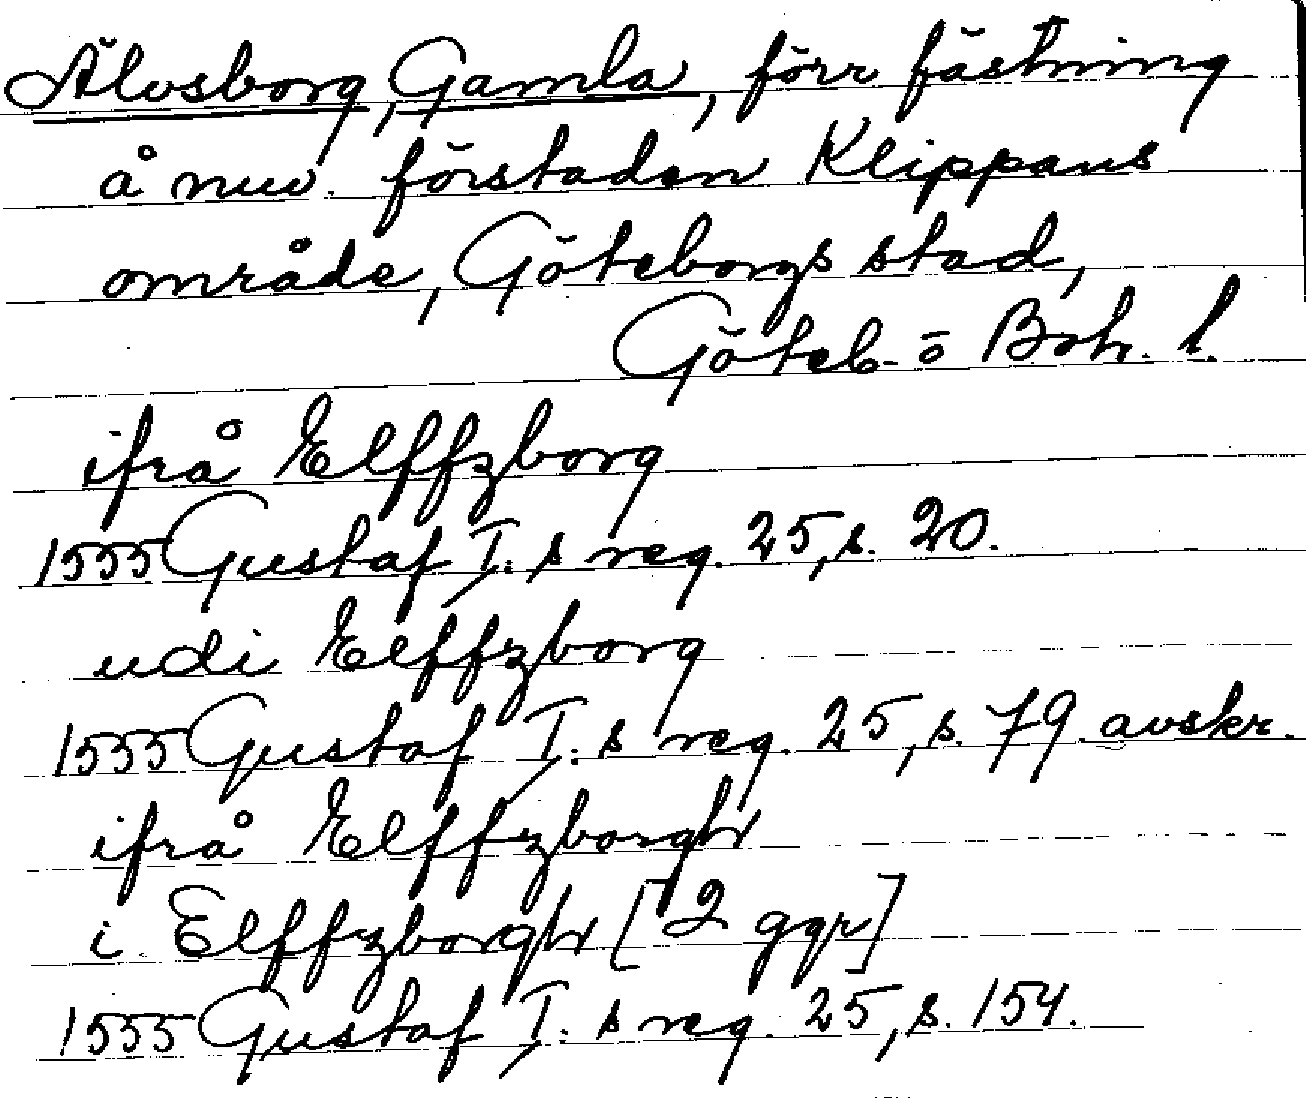 Älvsborg, Gamla, förr fästning
å nuv. förstaden Klippans
område, Göteborgs stad,
Göteb. o Boh. l.
ifrå Elffzborg
1555 Gustaf I:s reg. 25, s. 20.
udi Elffzborg
1555 Gustaf I:s reg. 25, s. 79 avskr.
ifrå Elffzborgh
i Elffzborgh [2 ggr]
1555 Gustaf I:s reg. 25, s. 154.